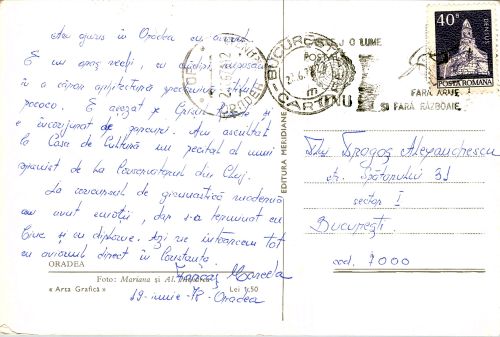 Am ajuns în Oradea cu avionul.
E un oraș vechi, cu clădiri
a căror arhitectură
rococo. E așezat pe Crișul Repede și
e înconjurat de parcuri. Am ascultat
la Casa de Cultură un recital al unui
organist de la Conservatorul din Cluj.
La concursul de gimnastică modernă
am avut emoții, dar s-a terminat cu
bine și cu diplome. Azi ne întoarcem tot
cu avionul direct în Constanța
Marcela
19-iunie-78-Oradea
ORADEA
Foto: Mariana și Al.
« Arta Grafică » Lei 1,50
EDITURA MERIDIANE
ORADEA
BUCUREȘTI
CARTARE
O LUME
FĂRĂ ARME
ȘI FĂRĂ RĂZBOAIE
40 B
DENSUȘ
POSTA ROMANA
Dragoș Alexandrescu
str. Spătarului 31
sector I
București
cod. 7000